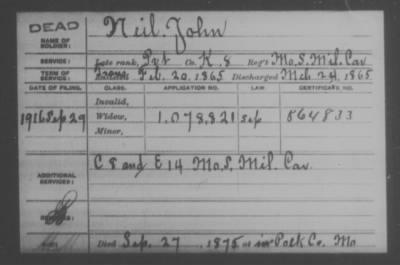 DEAD
NAME OF SOLDIER: Neil. John
SERVICE: Late rank, Pvt Co. K. 8 Reg't Mo. S. Mil. Cav
TERM OF SERVICE: Enlisted Feb. 20, 1865 Discharged Mch. 24, 1865
DATE OF FILING. CLASS. APPLICATION NO. LAW. CERTIFICATE NO.
Invalid,
1916 Sep 29 Widow, 1.078,821 Sep 864833
Minor,
ADDITIONAL SERVICES: C 8 and E 14 Mo. S. Mil. Cav.
REMARKS:
Died Sep. 27, 1875 at in Polk Co. Mo